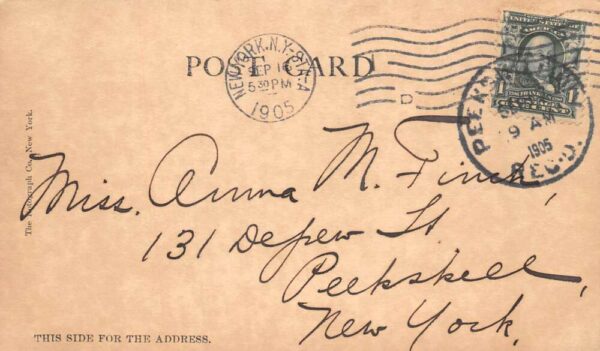 POST CARD
NEW YORK, N.Y. STA. A
SEP 16
530 PM
1905
D
UNITED STATES OF
AMERICA
PEEKSKILL, N.Y.
9 AM
1905
REC'D.
Miss. Anna M. Finch,
131 Depew St
Peekskill,
New York,
The Rotograph Co., New York.
THIS SIDE FOR THE ADDRESS.